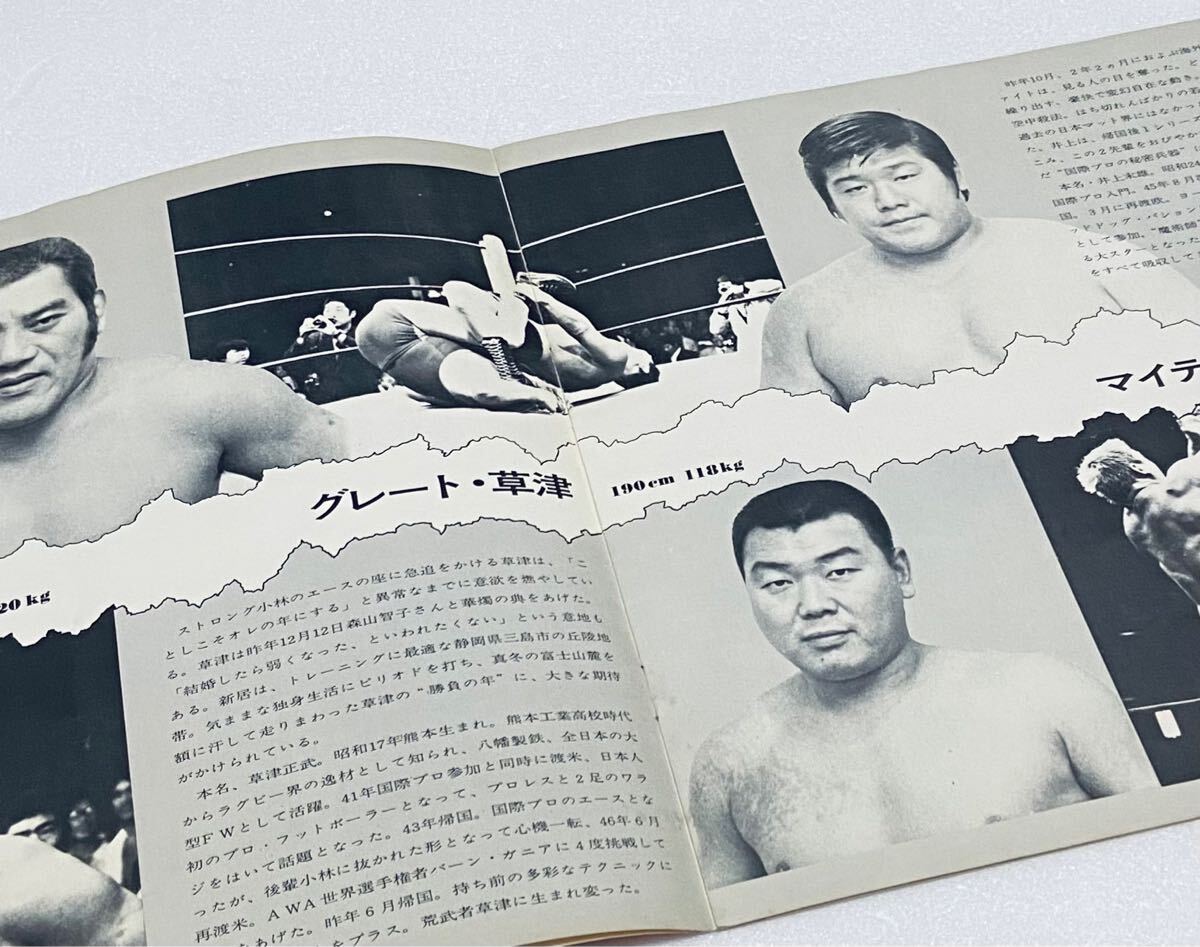 グレート・草津 190cm 118kg
20 kg
ストロング小林のエースの座に急追をかける草津は、「こ
としこそオレの年にする」と異常なまでに意欲を燃やしてい
る。草津は昨年12月12日森山智子さんと華燭の典をあげた。
「結婚したら弱くなった、といわれたくない」という意地も
ある。新居は、トレーニングに最適な静岡県三島市の丘陵地
帯。気ままな独身生活にピリオドを打ち、真冬の富士山麓を
額に汗して走りまわった草津の“勝負の年”に、大きな期待
がかけられている。
本名、草津正武。昭和17年熊本生まれ。熊本工業高校時代
からラグビー界の逸材として知られ、八幡製鉄、全日本の大
型FWとして活躍。41年国際プロ参加と同時に渡米、日本人
初のプロ・フットボーラーとなって、プロレスと2足のワラ
ジをはいて話題となった。43年帰国。国際プロのエースとな
ったが、後輩小林に抜かれた形となって心機一転、46年6月
再渡米。AWA世界選手権者バーン・ガニアに4度挑戦して
あげた。昨年6月帰国。持ち前の多彩なテクニックに
をプラス。荒武者草津に生まれ変った。
マイテ
昨年10月、2年2ヵ月におよぶ海外
ァイトは、見る人の目を奪った。と
繰り出す、豪快で変幻自在な動き。
空中殺法。はち切れんばかりの若
過去の日本マット界にはなかっ
た。井上は、帰国後1シリーズ
こみ、この2先輩をおびやか
だ“国際プロの秘密兵器”に
本名・井上末雄。昭和24
国際プロ入門。45年8月
国。3月に再渡欧。ヨン
ッドドッグ・バション
として参加、“魔術師
る大スターとなったカ
をすべて吸収して